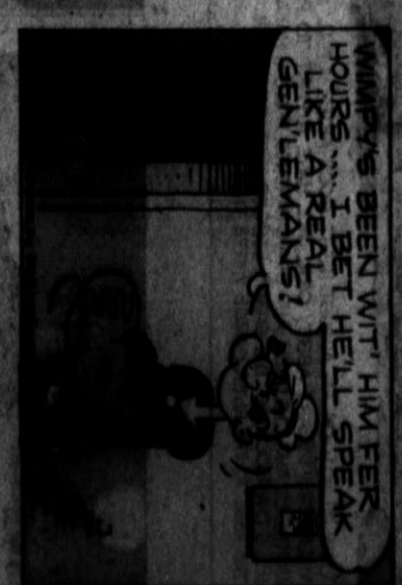 WIMPY'S BEEN WIT' HIM FER
HOURS.... I BET HE'LL SPEAK
LIKE A REAL
GEN'LEMANS!